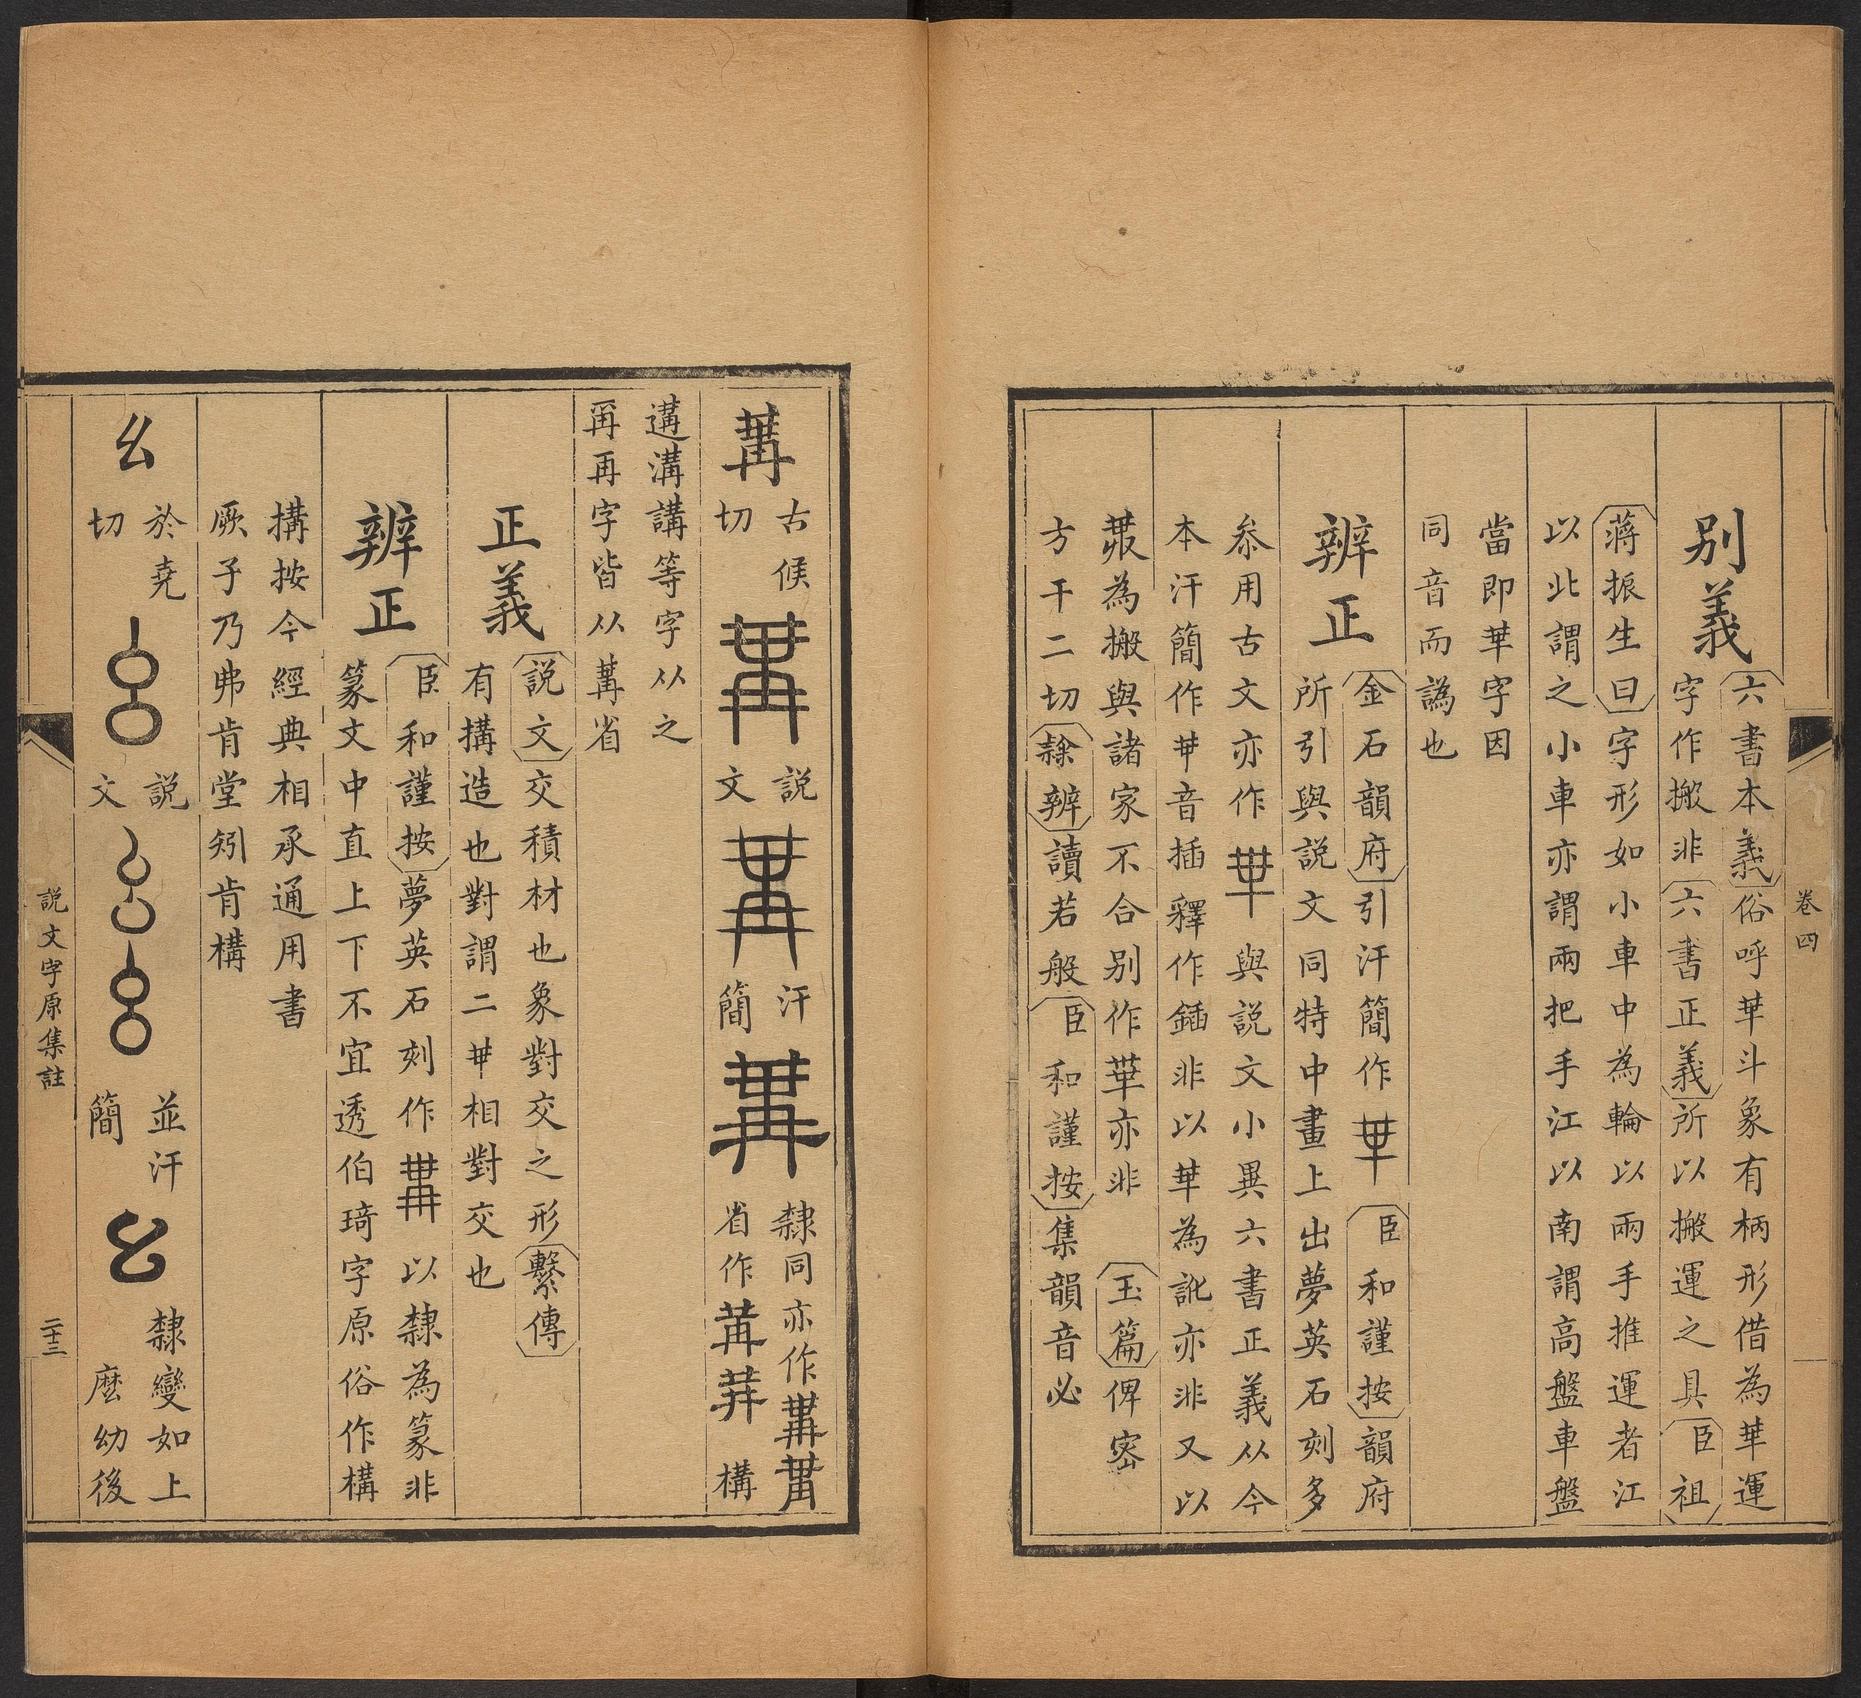 卷四
別義
六書本義俗呼𠦒斗象有柄形借為𠦒運
字作搬非六書正義所以搬運之具臣祖
蔣振生曰字形如小車中為輪以兩手推運者江
以北謂之小車亦謂兩把手江以南謂高盤車盤
當即𠦒字因
同音而譌也
辨正
金石韻府引汗簡作臣和謹按韻府
所引與説文同特中畫上出夢英石刻多
叅用古文亦作與説文小異六書正義从今
本汗簡作𠀎音插釋作鍤非以𠦒為訛亦非又以
為搬與諸家不合別作亦非玉篇俾密
方干二切隸辨讀若般臣和謹按集韻音必
冓
古候
切
説
文
汗
簡
隸同亦作
省作構
遘溝講等字从之
爯再字皆从冓省
正義
説文交積材也象對交之形繫傳
有構造也對謂二𠀎相對交也
辨正
臣和謹按夢英石刻作以隸為篆非
篆文中直上下不宜透伯琦字原俗作構
搆按今經典相承通用書
厥子乃弗肯堂矧肯構
幺
於堯
切
説
文
並汗
簡
隸變如上
麼幼後
説文字原集註
二十三